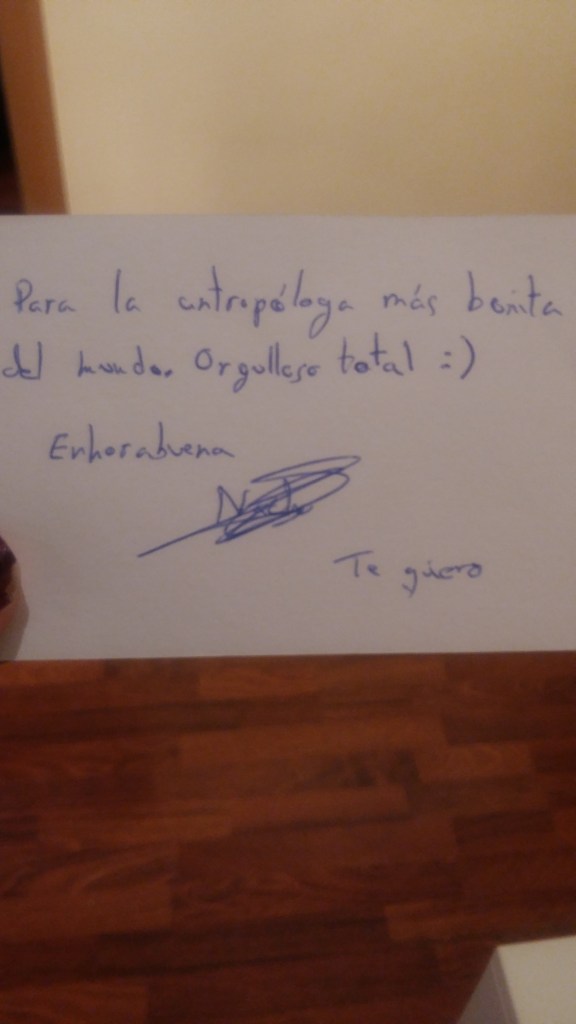 Para la antropóloga más bonita
del mundo. Orgulloso total :)
Enhorabuena
Te quiero